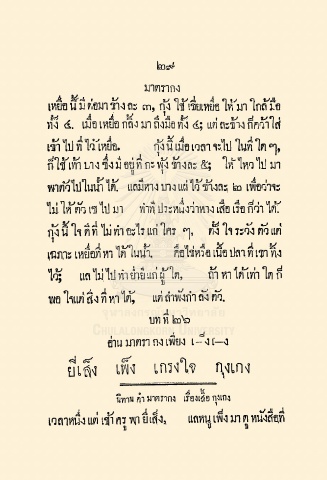 ๒๙
มาตรากง
เหยื่อ นี้ มี ต่อมา ข้าง ละ ๓, กุ้ง ใช้ เขี่ยเหยื่อ ให้ มา ใกล้ มือ
ทั้ง ๔. เมื่อ เหยื่อ กลิ้ง มา ถึงมือ ทั้ง ๔; แต่ ละข้าง ก็คว้า ใส่
เข้า ไป ที่ ไว้ เหยื่อ. กุ้ง นี้ เมื่อ เวลา จะไป ในที่ ใด ๆ,
ก็ ใช้ เท้า บาง ซึ่ง มี อยู่ ที่ กะ พุ้ง ข้างละ ๕; ให้ ไหว ไป มา
พาตัวไป ในน้ำ ได้. แลมีหาง บาง แผ่ ไว้ ข้างละ ๒ เพื่อว่าจะ
ไม่ ให้ ตัว เซ ไป มา ทำที่ ประหนึ่งว่าหาง เสือ เรือ ก็ว่า ได้.
กุ้ง นี้ ใจ ดี ที่ ไม่ ทำ อะไร แก่ ใคร ๆ, ตั้ง ใจ ระวัง ตัว แต่
เฉภาะ เหยื่อที่ หา ได้ ในน้ำ. คือไรหรือ เนื้อ ปลา ที่ เขา ทิ้ง
ไว้; แล ไม่ ไป ทำ ย่ำยี แก่ ผู้ ใด, ถ้า หา ได้ เท่า ใด ก็
พอ ใจแต่ สิ่ง ที่ หา ได้, แต่ ลำพังกำ ลัง ตัว.
บท ที่ ๒๖
อ่าน มาตรา กง เพี้ยง เ–ึง เ–ง
ยี่เส็ง เพ็ง เกรงใจ กุงเกง
นิทาน คำ มาตรากง เรื่องเสื้อ กุงเกง
เวลาหนึ่ง แต่ เช้า ครู พา ยี่เส็ง, แลหนู เพ็ง มา ดู หนังสือที่
จุฬาลงกรณ์มหาวิทยาลัย
CHULALONGKORN UNIVERSITY